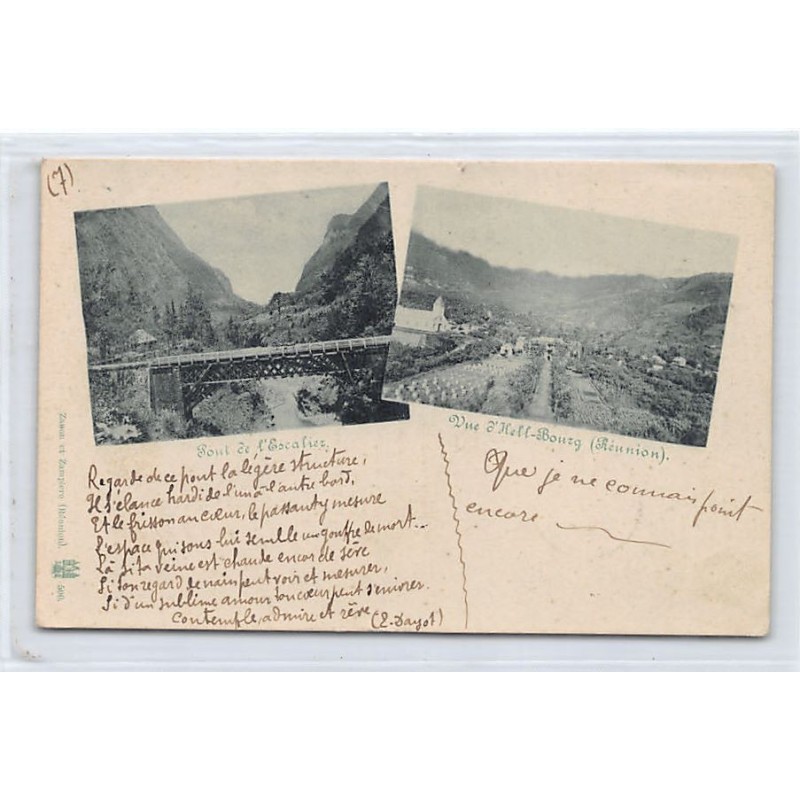 (7)
Pont de l'Escalier.
Vue d'Hell-Bourg (Réunion).
Regarde de ce pont la légère structure,
Il s'élance hardi de l'un à l'autre bord,
Et le frisson au cœur, le passant y mesure
L'espace qui sous lui semble un gouffre de mort...
Là si ta veine est chaude encor de sève
Si ton regard de nain peut voir et mesurer,
Si d'un sublime amour ton cœur peut s'enivrer.
Contemple, admire et rêve
(E. Dayot)
Que je ne connais point
encore
Zanon et Zampiero (Réunion).
500.